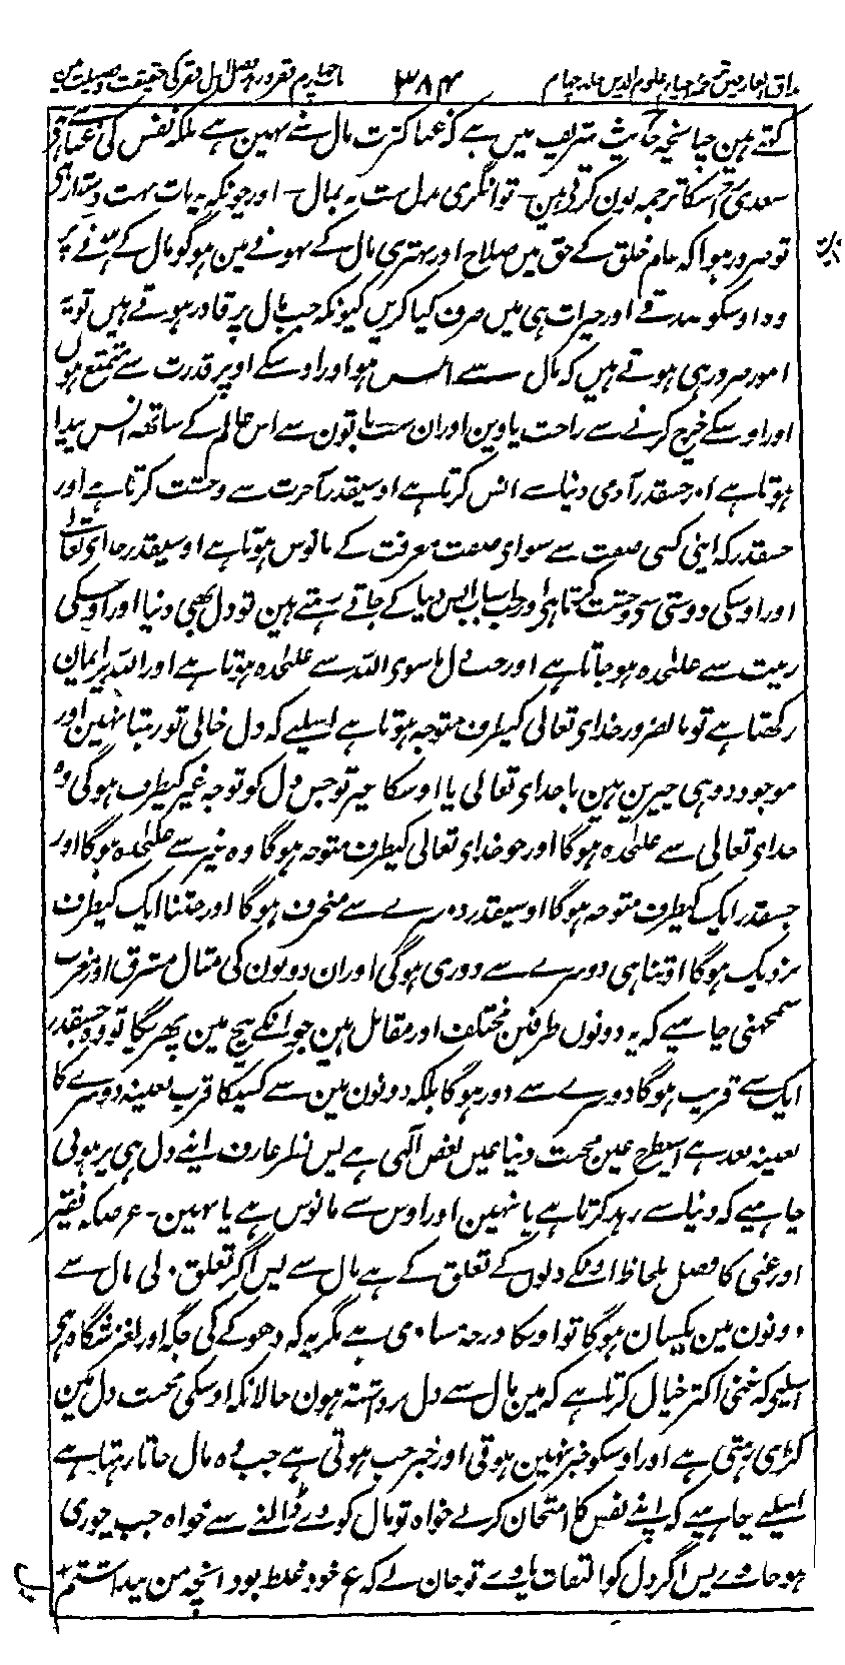 مذاق العارفین ترجمہ احیاء علوم الدین جلد چہارم ۳۸۴ باب چہارم فقر و زہد فصل اول فقر کی حقیقت و فضیلت میں
کہتے ہین چنانچہ حدیث شریف میں ہے کہ غنا کثرت مال سے نہین ہے بلکہ نفس کی غنا ہے
سعدی رح اسکا ترجمہ یون کرتے ہین۔ توانگری بدل ست نہ بمال۔ اور چونکہ یہ بات بہت دشوار ہی
تو ضرور ہوا کہ عام خلق کے حق میں صلاح اور بہتری مال کے نہونے مین ہو گو مال کے ہونے پر
وہ اوسکو صدقے اور خیرات ہی میں صرف کیا کریں کیونکہ جب مال پر قادر ہوتے ہیں تو یہ
امور ضرور ہی ہوتے ہیں کہ مال سے انس ہو اور اوسکے اوپر قدرت سے متمتع ہوں
اور اوسکے خرچ کرنے سے راحت پاوین اور ان سب باتون سے اس عالم کے ساتھہ انس پیدا
ہوتا ہے اور جسقدر آدمی دنیا سے انس کرتا ہے اوسیقدر آخرت سے وحشت کرتا ہے اور
جسقدر کہ اپنی کسی صفت سے سوای صفت معرفت کے مانوس ہوتا ہے اوسیقدر خدای تعالی
اور اوسکی دوستی سے وحشت کرتا ہی اور جب اسباب انس دنیا کے جاتے رہتے ہین تو دل بھی دنیا اور اوسکی
زینت سے علٰحدہ ہو جاتا ہے اور جب دل ماسوی اللہ سے علٰحدہ ہوتا ہے اور اللہ پر ایمان
رکھتا ہے تو بالضرور خدای تعالی کیطرف متوجہ ہوتا ہے اسلیے کہ دل خالی تو رہتا نہین اور
موجود دو ہی چیزین ہین یا خدای تعالی یا اوسکا غیر تو جس دل کو توجہ غیر کیطرف ہوگی وہ
خدای تعالی سے علٰحدہ ہوگا اور جو خدای تعالی کیطرف متوجہ ہوگا وہ غیر سے علٰحدہ ہوگا اور
جسقدر ایک کیطرف متوجہ ہوگا اوسیقدر دوسرے سے منحرف ہوگا اور جتنا ایک کیطرف
نزدیک ہوگا اوتنا ہی دوسرے سے دوری ہوگی اور ان دونون کی مثال مشرق اور مغرب
سمجھنی چاہیے کہ یہ دونوں طرفین مختلف اور مقابل ہین جو انکے بیچ مین پھریگا تو وہ جسقدر
ایک سے قریب ہوگا دوسرے سے دور ہوگا بلکہ دونون مین سے کسیکا قرب بعینہ دوسرے کا
بعینہ بعد ہے اسیطرح عین محبت دنیا عین بغض آلہی ہے پس نظر عارف اپنے دل ہی پر ہونی
چاہیے کہ دنیا سے زہد کرتا ہے یا نہین اور اوس سے مانوس ہے یا نہین۔ غرضکہ فقیر
اور غنی کا فضل بلحاظ اونکے دلوں کے تعلق کے ہے مال سے پس اگر تعلق دلی مال سے
دونون مین یکسان ہوگا تو اونکا درجہ مساوی ہے مگر یہ کہ دھوکے کی جگہ اور لغزشگاہ ہی
اسلیے کہ غنی اکثر خیال کرتا ہے کہ مین مال سے دل برداشتہ ہون حالانکہ اوسکی محبت دل مین
گڑی رہتی ہے اور اوسکو خبر نہین ہوتی اور خبر جب ہوتی ہے جب وہ مال جاتا رہتا ہے
اسلیے چاہیے کہ اپنے نفس کا امتحان کرے خواہ تو مال کو دے ڈالنے سے خواہ جب چوری
ہو جاوے پس اگر دل کو التفات پاوے تو جان لے کہ ع خود غلط بود انچہ من پنداشتم